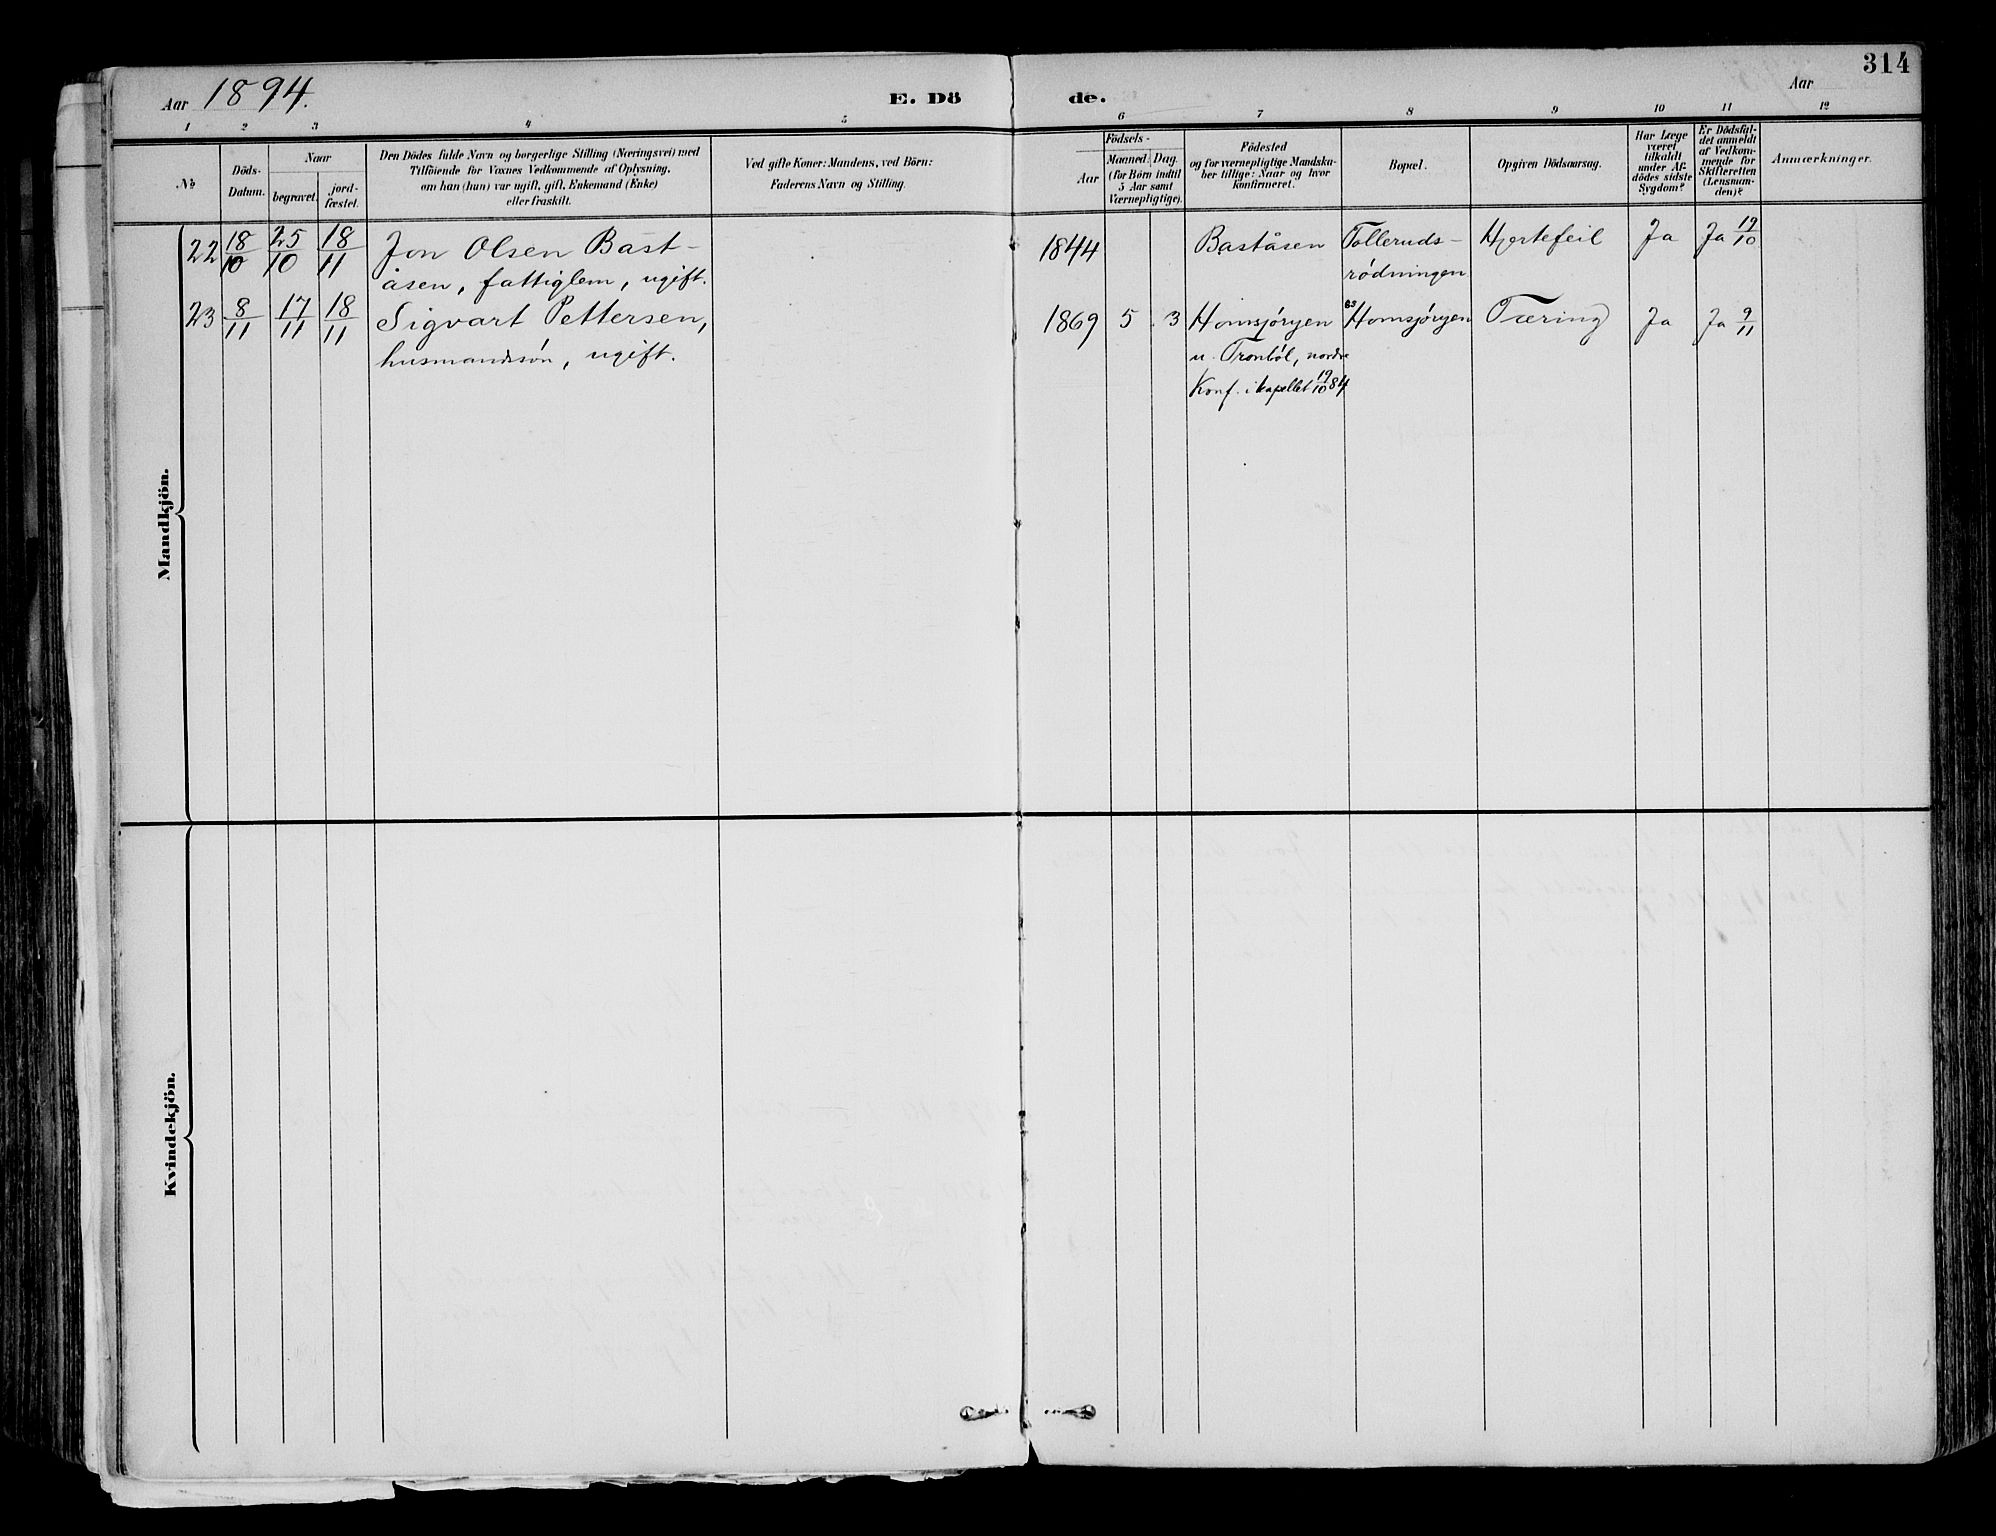 Aar 1894. E. Dö de. Aar 314
1 2 3 4 5 6 7 8 9 10 11 12
№
Döds-
Datum.
Naar
begravet.
jord-
fæstet.
Den Dödes fulde Navn og borgerlige Stilling (Næringsvei) med
Tilföiende for Voxnes Vedkommende af Oplysning,
om han (hun) var ugift, gift, Enkemand (Enke)
eller fraskilt.
Ved gifte Koner: Mandens, ved Börn:
Faderens Navn og Stilling.
Födsels-
Aar
Maaned. Dag.
(for Börn indtil
5 Aar samt
Værnepligtige).
Födested
og for værnepligtige Mandska-
ber tillige: Naar og hvor
konfirmeret.
Bopæl.
Opgiven Dödsaarsag.
Har Læge
været
tilkaldt
under Af-
dödes sidste
Sygdom?
Er Dödsfal-
det anmeldt
af Vedkom-
mende for
Skifteretten
(Lensman-
den)?
Anmærkninger.
Mandkjön.
22 18/10 25/10 18/11 Jon Olsen Bast- 1844 Baståsen Tolleruds- Hjertefeil Ja Ja 19/10
åsen, fattiglem, ugift. rödningen
23 8/11 17/11 18/11 Sigvart Pettersen, 1869 5 3 Homsjöryen Homsjöryen Tæring Ja Ja 9/11
husmandssön, ugift. u. Tronböl, nordre
Konf. i kapellet 19/10 84
Kvindekjön.